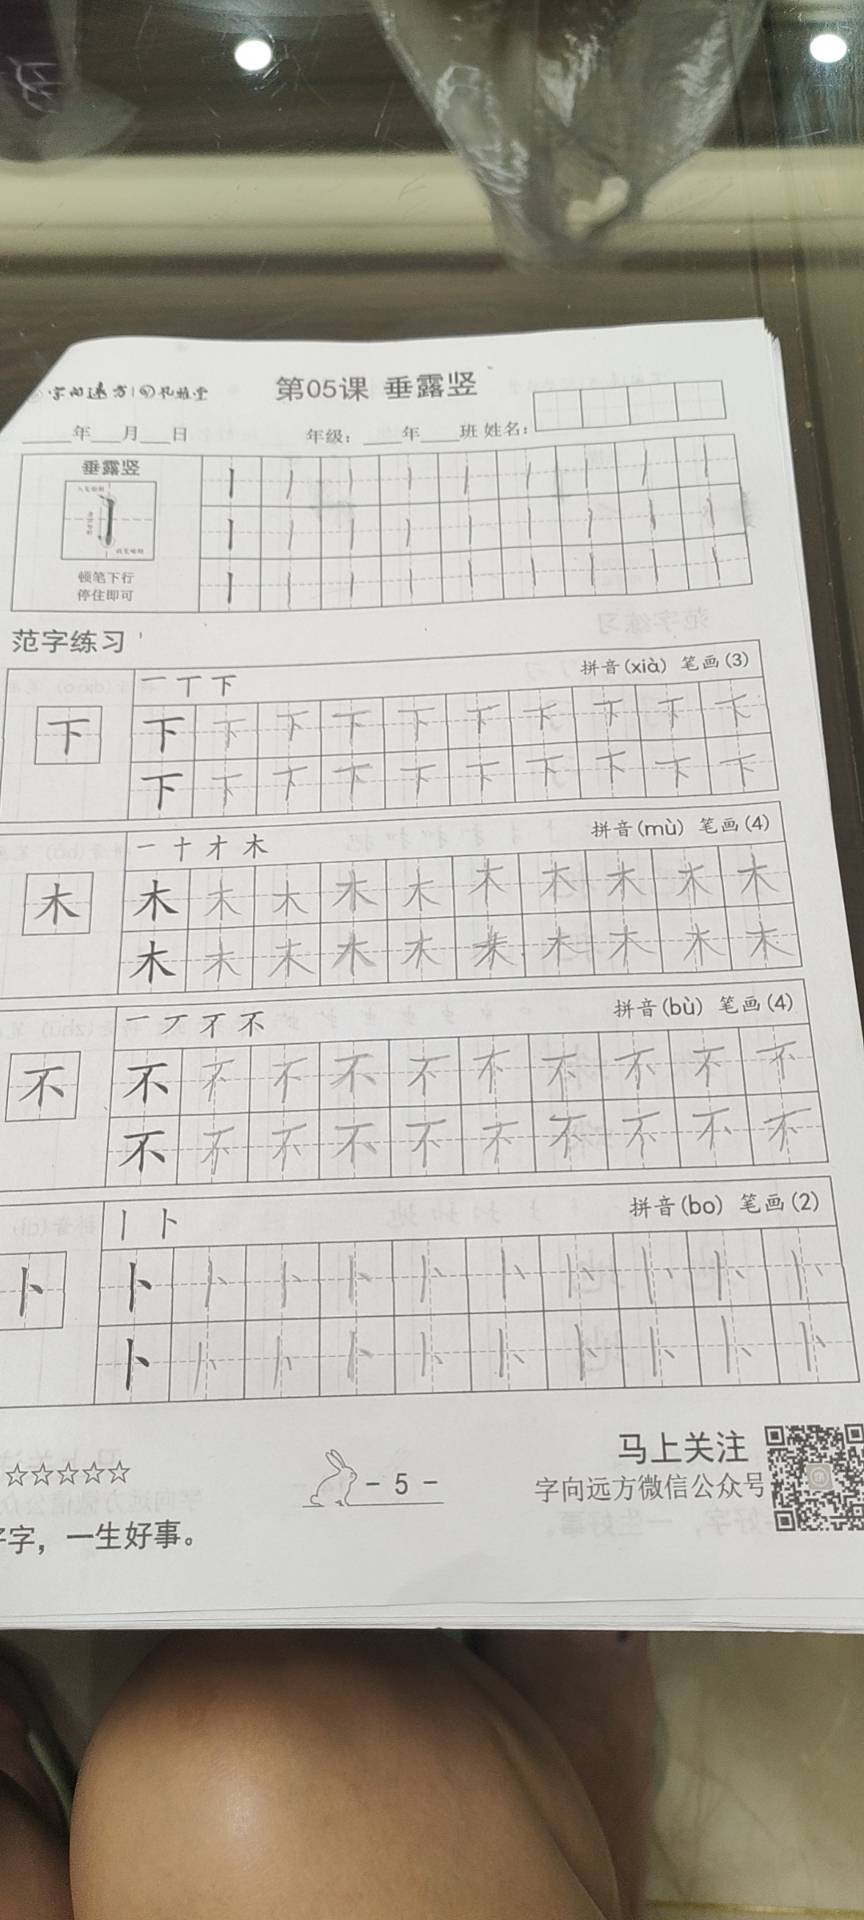 字向远方
第05课 垂露竖
____年___月___日 年级：____年____班 姓名：
垂露竖
顿笔下行
停住即可
范字练习
一 丅 下 拼音(xià) 笔画(3)
下 下 下 下 下 下 下 下 下 下 下
下 下 下 下 下 下 下 下 下 下
一 十 才 木 拼音(mù) 笔画(4)
木 木 木 木 木 木 木 木 木 木 木
木 木 木 木 木 木 木 木 木 木
一 丆 不 不 拼音(bù) 笔画(4)
不 不 不 不 不 不 不 不 不 不 不
不 不 不 不 不 不 不 不 不 不
丨 卜 拼音(bo) 笔画(2)
卜 卜 卜 卜 卜 卜 卜 卜 卜 卜 卜
卜 卜 卜 卜 卜 卜 卜 卜 卜 卜
☆☆☆☆☆ - 5 - 马上关注
字向远方微信公众号
字，一生好事。